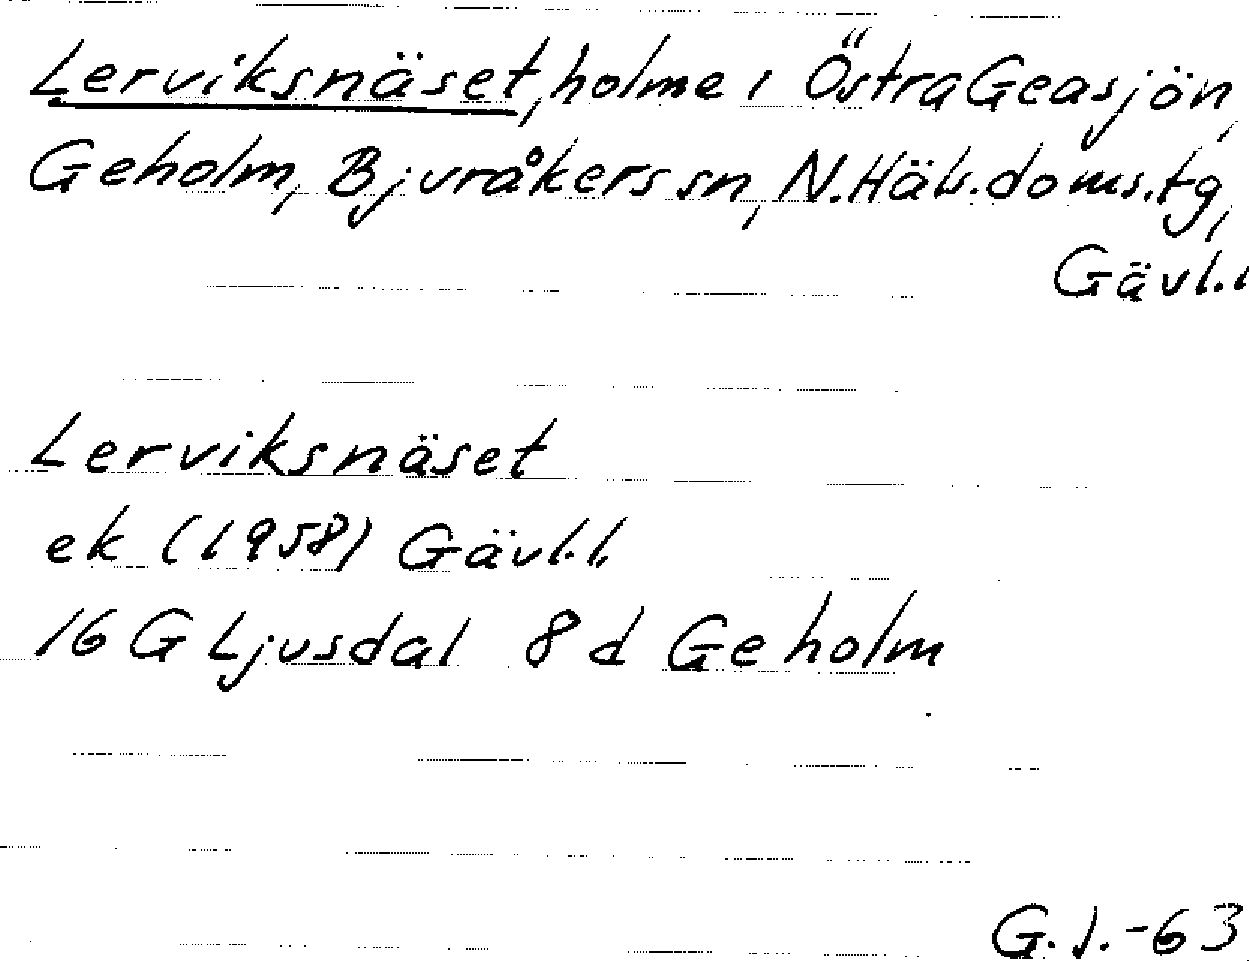 Lerviksnäset, holme i Östra Geasjön,
Geholm, Bjuråkers sn, N.Häls.doms.tg,
Gävl.l
Lerviksnäset
ek (1958) Gävl.l.
16 G Ljusdal 8 d Geholm
G.J.-63